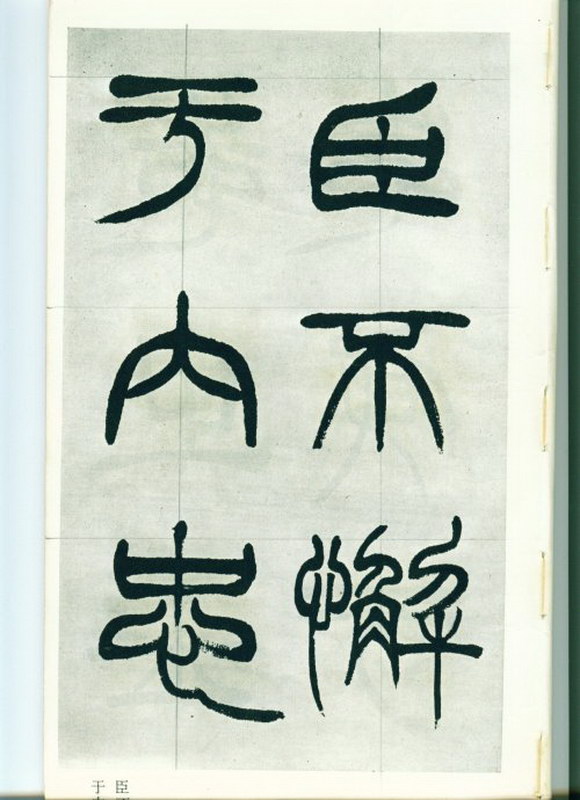 臣不懈
于内忠
臣
于